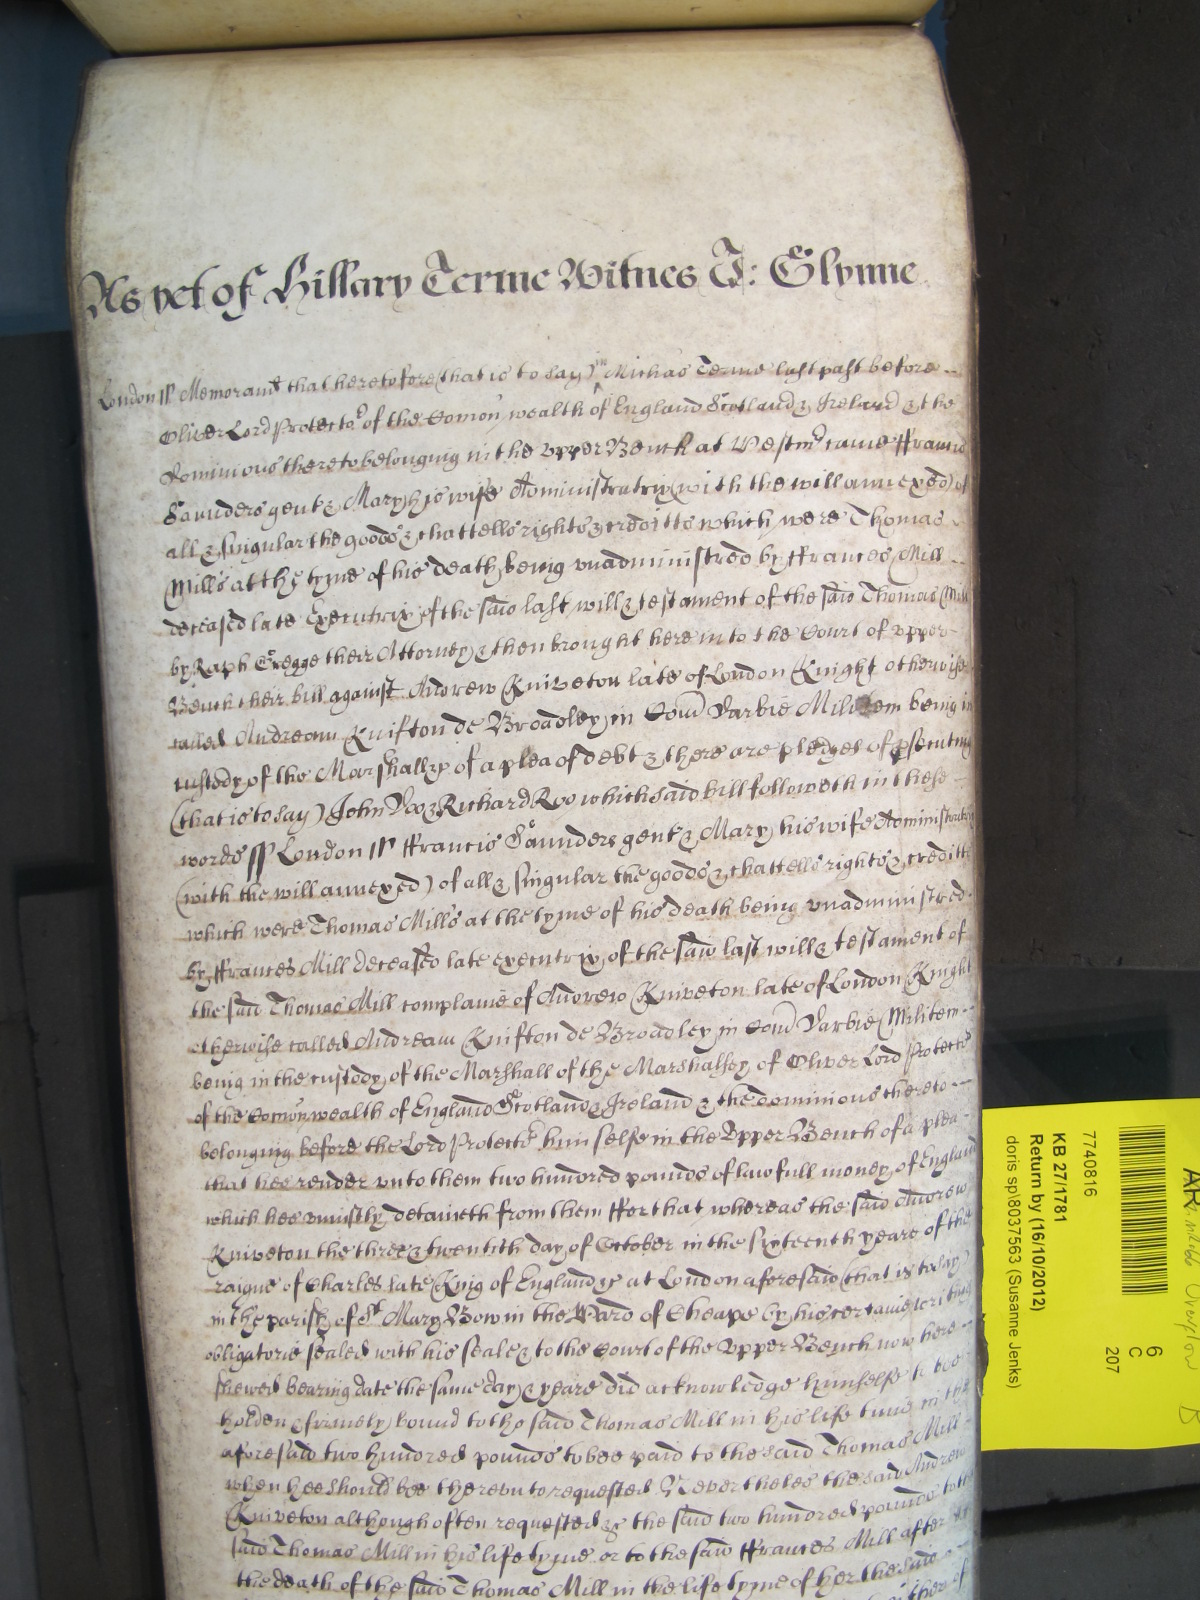 As yet of Hillary Terme Witnes J: Glynne
London ss Memorand that heretofore (that is to say) in Michas Terme last past before
Oliver Lord Protector of the Comon wealth of England Scotland & Ireland & the
dominions thereto belonging in the upper Bench at Westmr came ffrancis
Saunders gent & Mary his wife Administratrix (with the will annexed) of
all & singular the goods & chattells rights & creditts which were Thomas
Mills at the tyme of his death being unadministred by ffrances Mill
deceased late Executrix of the said last will & testament of the said Thomas Mill
by Raph Gregge their Attorney & then brought here into the Court of upper
Bench their bill against Andrew Kniveton late of London Knight otherwise
called Andream Knifton de Broadley in Com Darbie Militem being in
custody of the Marshall &c of a plea of debt & there are pledges of psecuting
(that is to say) John Doo & Richard Roo which said bill followeth in these
words ss London ss ffrancis Saunders gent & Mary his wife Administratrix
(with the will annexed) of all & singular the goods & chattells rights & creditts
which were Thomas Mills at the tyme of his death being unadministred
by ffrances Mill deceased late executrix of the said last will & testament of
the said Thomas Mill complaine of Andrew Kniveton late of London Knight
otherwise called Andream Knifton de Broadley in Com Darbie Militem
being in the custody of the Marshall of the Marshalsey of Oliver Lord Protector
of the Comonwealth of England Scotland & Ireland & the dominions thereto
belonging before the Lord Protector himselfe in the Upper Bench of a plea
that hee render unto them two hundred pounds of lawfull money of England
which hee uniustly detaineth from them ffor that whereas the said Andrew
Kniveton the three & twentith day of October in the sixteenth yeare of the
raigne of Charles late King of England &c at London aforesaid (that is to say)
in the parish of St Mary Bow in the Ward of Cheape by his certaine writing
obligatorie sealed with his seale & to the Court of the Upper Bench now here
shewed bearing date the same day & yeare did acknowledge himselfe to bee
holden & firmely bound to the said Thomas Mill in his life time in the
aforesaid two hundred pounds to bee paid to the said Thomas Mill
when hee should bee thereunto requested Nevertheles the said Andrew
Kniveton although often requested &c the said two hundred pounds to the
said Thomas Mill in his life tyme or to the said ffrances Mill after
the death of the said Thomas Mill in the life tyme of her the said
7740816
KB 27/1781
Return by (16/10/2012)
doris sp\8037563 (Susanne Jenks)
6
C
207
Overflow